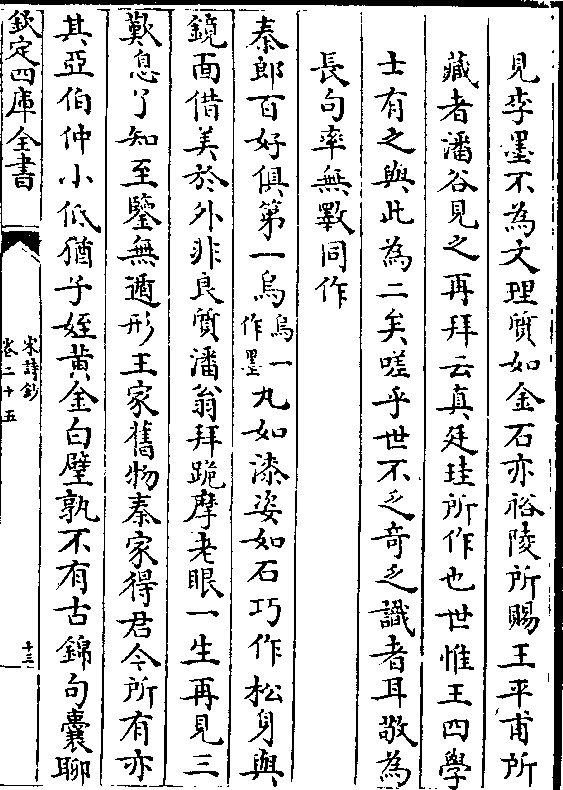 見李墨不為文理質如金石亦裕陵所賜王平甫所
藏者潘谷見之再拜云真廷珪所作也世惟王四學
士有之與此為二矣嗟乎世不乏奇乏識者耳敬為
長句率無斁同作
秦郎百好俱第一烏烏一作墨丸如漆姿如石巧作松身與
鏡面借美於外非良質潘翁拜跪摩老眼一生再見三
歎息了知至鑒無遁形王家舊物秦家得君今所有亦
其亞伯仲小低猶子姪黄金白璧孰不有古錦句囊聊
欽定四庫全書
宋詩鈔
卷二十五
十三